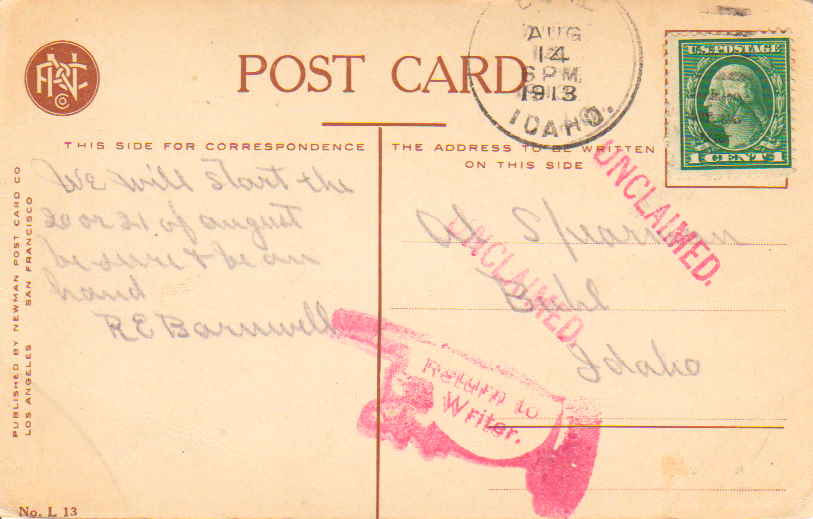 AUG
14
6 PM
1913
IDAHO.
U.S. POSTAGE
1 CENT 1
POST CARD
THIS SIDE FOR CORRESPONDENCE
THE ADDRESS TO BE WRITTEN
ON THIS SIDE
We will start the
20 or 21 of august
be sure & be on
hand
R E Barnwell
Spearman
Buhl
Idaho
UNCLAIMED.
UNCLAIMED.
Return to
Writer.
PUBLISHED BY NEWMAN POST CARD CO
LOS ANGELES SAN FRANCISCO
No. L 13